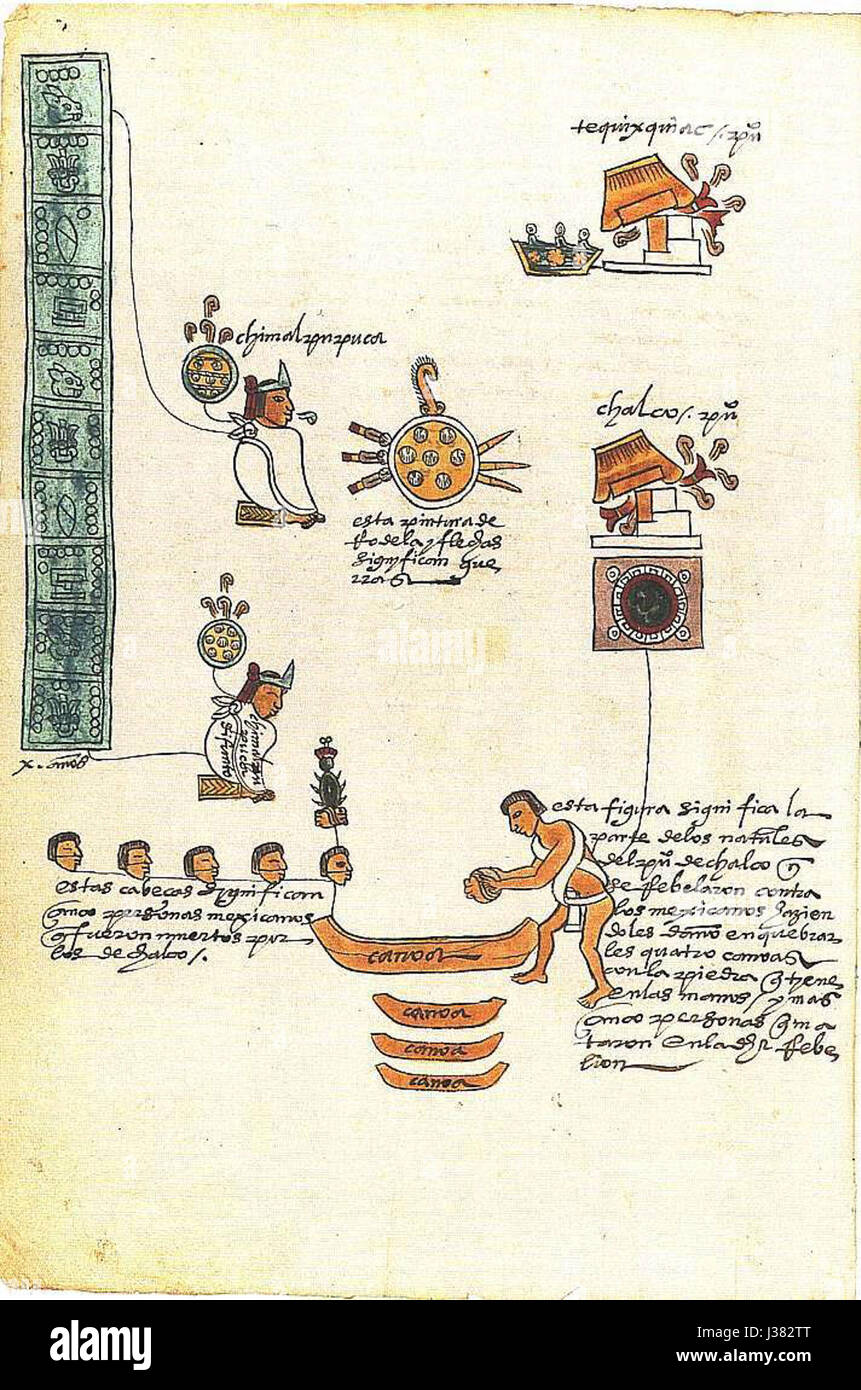 tequixquiac /. puº
chimalpupuca
chalco /. puº
esta pintura de
Rodela y flechas
significan gue
rras
x. años
chimalpu
puca
difunto
esta figura significa la
parte de los natales
del puº de chalco q
se Rebelaron contra
los mexicanos hazien
doles daño en quebrar
les quatro canoas
con la piedra q tyene
en las manos / y mas
çinco personas q ma
taron en la dha Rebe
lion
estas cabeças significan
çinco personas mexicanos
q fueron muertos por
los de chalco /.
canoa
canoa
canoa
canoa
alamy
alamy
Image ID: J382TT
www.alamy.com